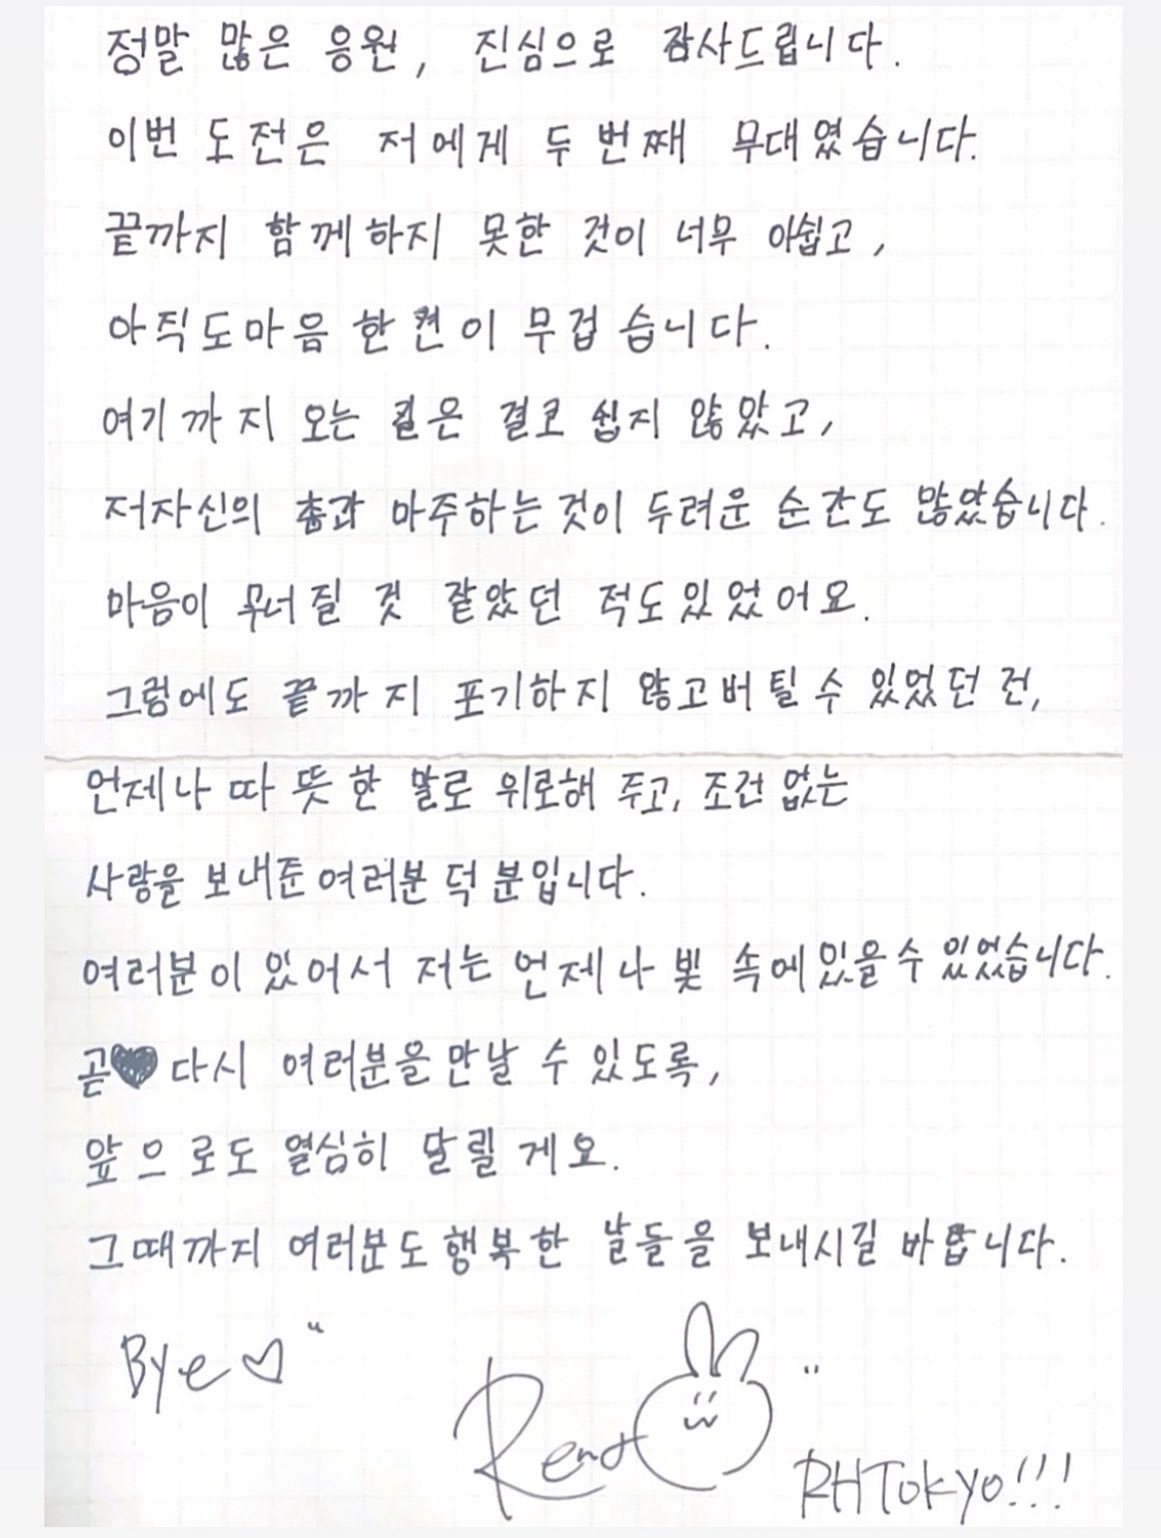 정말 많은 응원, 진심으로 감사드립니다.
이번 도전은 저에게 두 번째 무대였습니다.
끝까지 함께하지 못한 것이 너무 아쉽고,
아직도마음 한켠이 무겁습니다.
여기까지 오는 길은 결코 쉽지 않았고,
저자신의 춤과 마주하는것이 두려운 순간도 많았습니다.
마음이 무너질 것 같았던 적도있었어요.
그럼에도 끝까지 포기하지 않고버틸수 있었던 건,
언제나 따뜻한 말로 위로해 주고, 조건 없는
사랑을 보내준여러분 덕분입니다.
여러분이 있어서 저는 언제나 빛 속에있을수 있었습니다.
곧♥다시 여러분을 만날 수 있도록,
앞으로도 열심히 달릴게요.
그때까지 여러분도 행복한 날들을 보내시길 바랍니다.
Bye♡
RHTokyo!!!